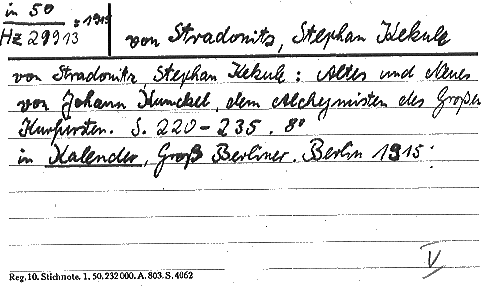 in 50
Hz 29913 : 1915
von Stradonitz, Stephan Kekule
von Stradonitz, Stephan Kekule: Altes und Neues
von Johann Kunckel, dem Alchymisten des Großen
Kurfürsten. S. 220-235. 8°
in Kalender, Groß Berliner. Berlin 1915.
V
Reg. 10. Stichnote. 1. 50. 232000. A. 803. S. 4062